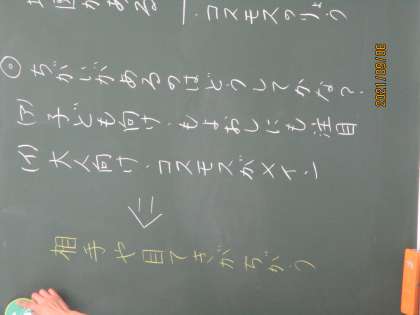 ◎ちがいがあるのはどうしてかな?
(ア)子ども向け・もよおしにも注目
(イ)大人向け・コスモスがメイン
相手や目てきがちがう
2021/09/30